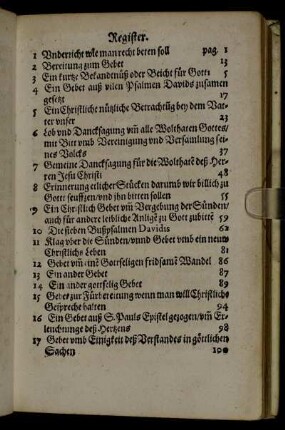 Register.
1 Vnderricht wie man recht beten soll pag. 1
2 Bereitung zum Gebet 13
3 Ein kurtze Bekandtnüß oder Beicht für Gott 5
4 Ein Gebet auß vilen Psalmen Davids zusamen
gesetzt 17
5 Ein Christliche nützliche Betrachtũg bey dem Vat-
ter vnser 23
6 Lob vnd Dancksagung vm̃ alle Wolthaten Gottes/
mit Bitt vmb Vereinigung vnd Versamlung sei-
nes Volcks 37
7 Gemeine Dancksagung für die Wolthatẽ deß Her-
ren Jesu Christi 48
8 Erinnerung etlicher Stücken darumb wir billich zu
Gott seufftzen/vnd jhn bitten sollen 55
9 Ein Christlich Gebet vm̃ Vergebung der Sünden/
auch für andere leibliche Anligẽ zu Gott zubittẽ 59
10 Die sieben Bußpsalmen Davidis 62
11 Klag vber die Sünden/vnnd Gebet vmb ein neuw
Christlichs Leben 81
12 Gebet vm̃ einẽ Gottseligen fridsamẽ Wandel 86
13 Ein ander Gebet 87
14 Ein ander gottselig Gebet 89
15 Gebet zur Fürbereitung wenn man will Christlichs
Gespräche halten 94
16 Ein Gebet auß S. Pauls Epistel gezogen/vm̃ Er-
leuchtunge deß Hertzens 98
17 Gebet vmb Einigkeit deß Verstandes in göttlichen
Sachen 100